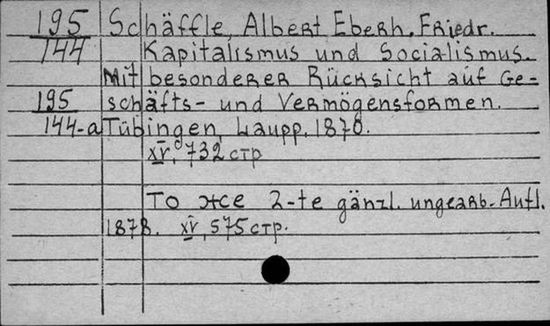 195 Schäffle, Albert Eberh. Friedr.
144 Kapitalismus und Socialismus.
Mit besonderer Rücksicht auf Ge-
195 schäfts- und Vermögensformen.
144-a Tübingen, Laupp, 1870.
XV, 732 стр
То же 2-te gänzl. ungearb. Aufl.
1878. XV, 575 стр.